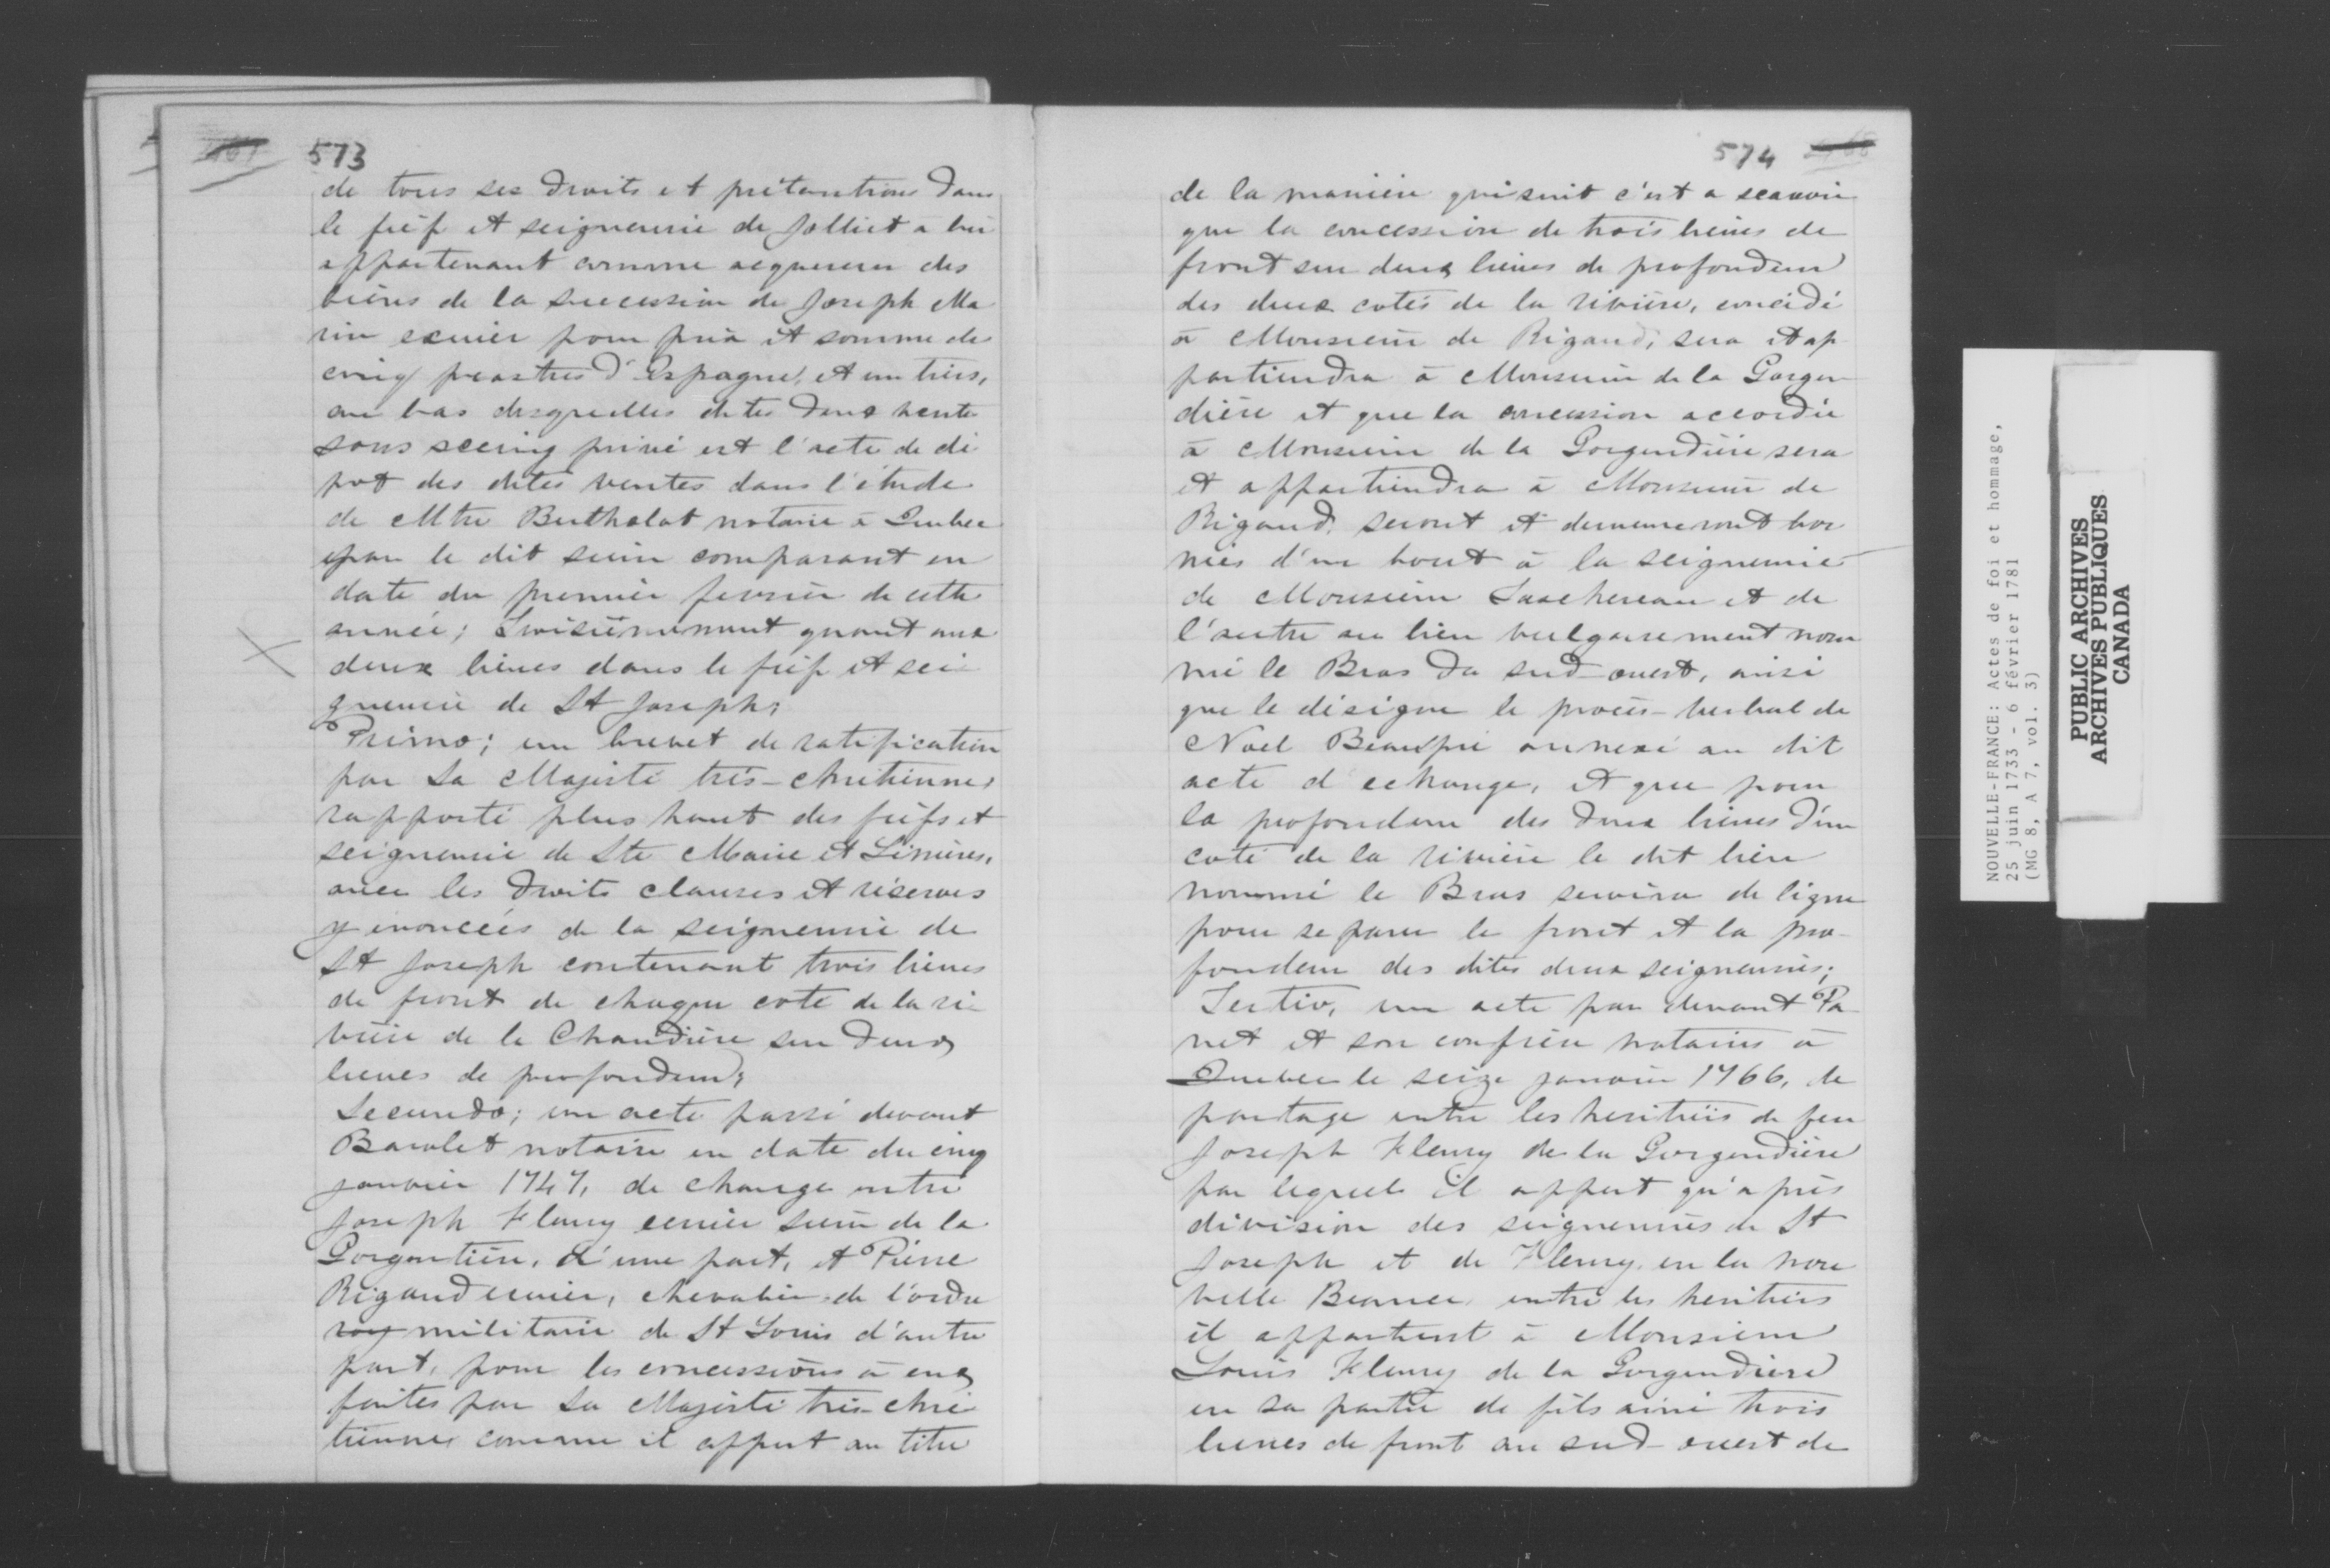 573
de tous ses droits et prétentions dans
le fief et seigneurie de Jolliet a lui
appartenant comme acquereur des
biens de la succession de Joseph Ma
rin ecuier pour prix et somme de
cinq piastres d'Espagne, et un tiers,
au bas desquelles dites deux ventes
sous seeing privé est l'acte de dé
pot des dites ventes dans l'étude
de Mtre Berthelot notaire à Quebec
par le dit sieur comparant en
date du premier fevrier de cette
année; Troisiemement quant aux
deux lieues dans le fief et sei
gneurie de St Joseph;
Primo; un brevet de ratification
par Sa Majesté très-chrétienne,
rapporté plus haut des fiefs et
seigneurie de Ste Marie et Linières,
avec les droits clauses et réserves
y énoncées de la seigneurie de
St Joseph contenant trois lieues
de front de chaque coté de la ri
vière de la Chaudière sur deux
lieues de profondeur;
Secundo; un acte passé devant
Barolet notaire en date du cinq
janvier 1747, de change entre
Joseph Fleury ecuier sieur de la
Gorgentière, d'une part, et Pierre
Rigaud ecuier, chevalier de l'ordre
roy militaire de St Louis d'autre
part, pour les concessions à eux
faites par Sa Majesté très-chré
tienne, comme il appert au titre
574
de la manière qui suit c'est a scavoir
que la concession de trois lieues de
front sur deux lieues de profondeur
des deux cotés de la rivière, concédé
à Monsieur de Rigaud, sera et ap
partiendra à Monsieur de la Gorgen
dière et que la concession accordée
à Monsieur de la Gorgendière sera
et appartiendra à Monsieur de
Rigaud, seront et demeureront bor
nées d'un bout à la seigneurie
de Monsieur Taschereau et de
l'autre au lieu vulgairement nom
mé le Bras du sud-ouest, ainsi
que le désigne le procès-verbal de
Noel Beaupré annexé au dit
acte d'echange, et que pour
la profondeur des deux lieues d'un
coté de la rivière le dit lieu
nommé le Bras servira de ligne
pour separer le front et la pro-
fondeur des dites deux seigneuries;
Tertio, un acte par devant Pa
net et son confrère notaires à
Quebec le seize janvier 1766, de
partage entre les heritiers de feu
Joseph Fleury de la Gorgendière
par lequel il appert qu'après
division des seigneuries de St
Joseph et de Fleury en la nou
velle Beauce, entre les heritiers
il appartient à Monsieur
Louis Fleury de la Gorgendière
en sa partie de fils ainé trois
lieues de front au sud-ouest de
NOUVELLE-FRANCE: Actes de foi et hommage,
25 juin 1733 - 6 février 1781
(MG 8, A 7, vol. 3)
PUBLIC ARCHIVES
ARCHIVES PUBLIQUES
CANADA